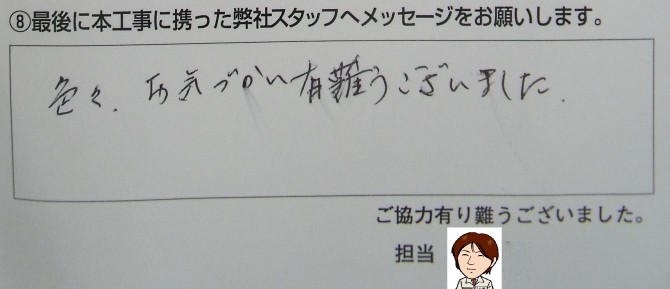 ⑧最後に本工事に携った弊社スタッフへメッセージをお願いします。
色々、お気づかい有難うございました.
ご協力有り難うございました。
担当